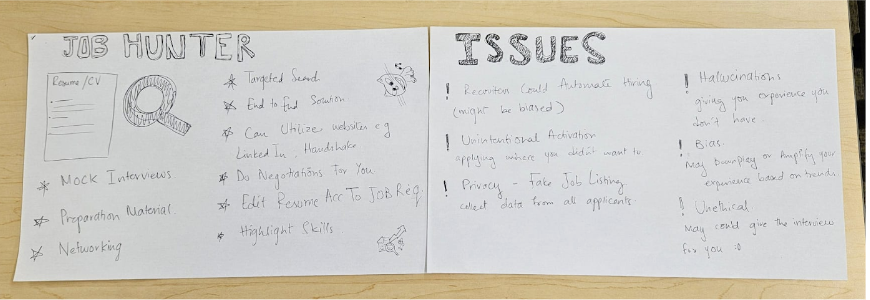 JOB HUNTER
Resume/CV
* Mock Interviews
* Preparation Material
* Networking
* Targeted Search
* End to End Solution
* Can Utilize websites e.g
LinkedIn, Handshake
* Do Negotiations For You
* Edit Resume Acc To JOB Req.
* Highlight Skills
ISSUES
! Recruiters Could Automate Hiring
(might be biased)
! Unintentional Activation
applying where you didn't want to
! Privacy - Fake Job Listing
collect data from all applicants.
! Hallucinations
giving you experience you
don't have.
! Bias.
May Downplay or Amplify your
experience based on trends
! Unethical.
May could give the interview
for you